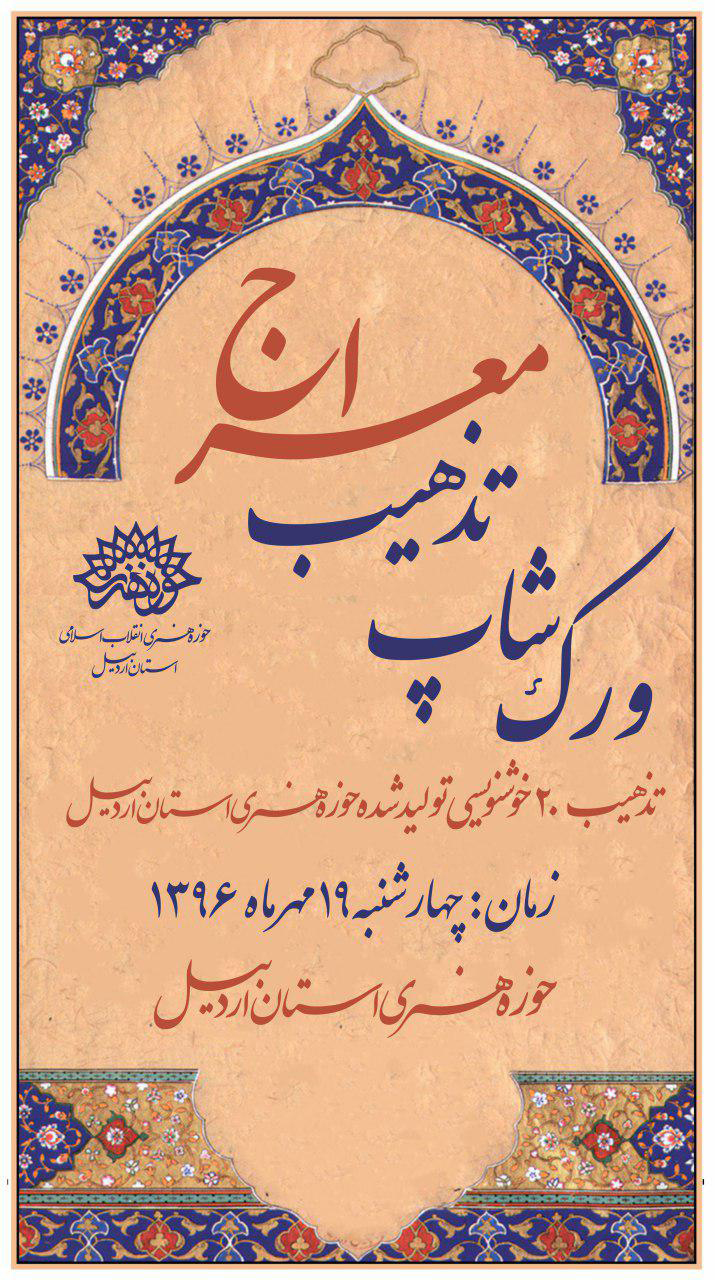 معراج
تذهیب
ورک شاپ
حوزه هنری
حوزه هنری انقلاب اسلامی
استان اردبیل
تذهیب ۲۰ خوشنویسی تولید شده حوزه هنری استان اردبیل
زمان: چهارشنبه ۱۹ مهرماه ۱۳۹۶
حوزه هنری استان اردبیل